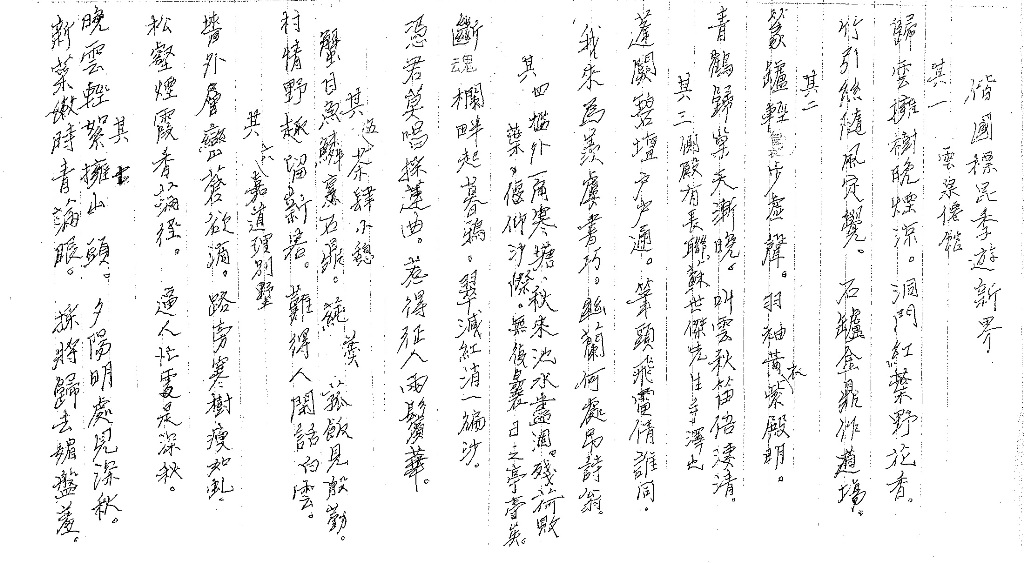 偕國標昆季遊新界
其一 雲泉僊舘
歸雲擁樹晚煙涼。洞門紅蘂野花香。
竹引絲絲隨風定覺。石罏金鼎作道場。
其二
篆罏輕裊步虛聲。羽袖黃衣紫殿明。
青鶴歸巢天漸晚。叫雲秋笛倍淒清。
其三 側殿有長聯、蘇世傑先生手澤也
蓬闕碧壇戶戶通。筆頭飛靈倩誰同。
我來為羨虞書巧。幽蘭何處吊詩翁。
其四 檻外一角寒塘、秋來池水盡涸。殘荷敗
葉、偃仰沙際。無復曩日之亭亭矣。
斷魂欄畔起暮鴉。翠減紅消一徧沙。
憑君莫唱採蓮曲。惹得征人兩鬢華。
其五 茶肆小憩
蟹目魚鱗烹石鼎。蒓羹菰飯見殷勤。
村情野趣留新客。難得人間話白雲。
其六 嘉道理別墅
墻外層巒蒼欲滴。路旁寒樹瘦如虬。
松壑煙霞香論徑。逼人忙處是深秋。
其七
晚雲輕絮擁山頭。夕陽明處見深秋。
新菜嫩時青論眼。採將歸去媚盤羞。